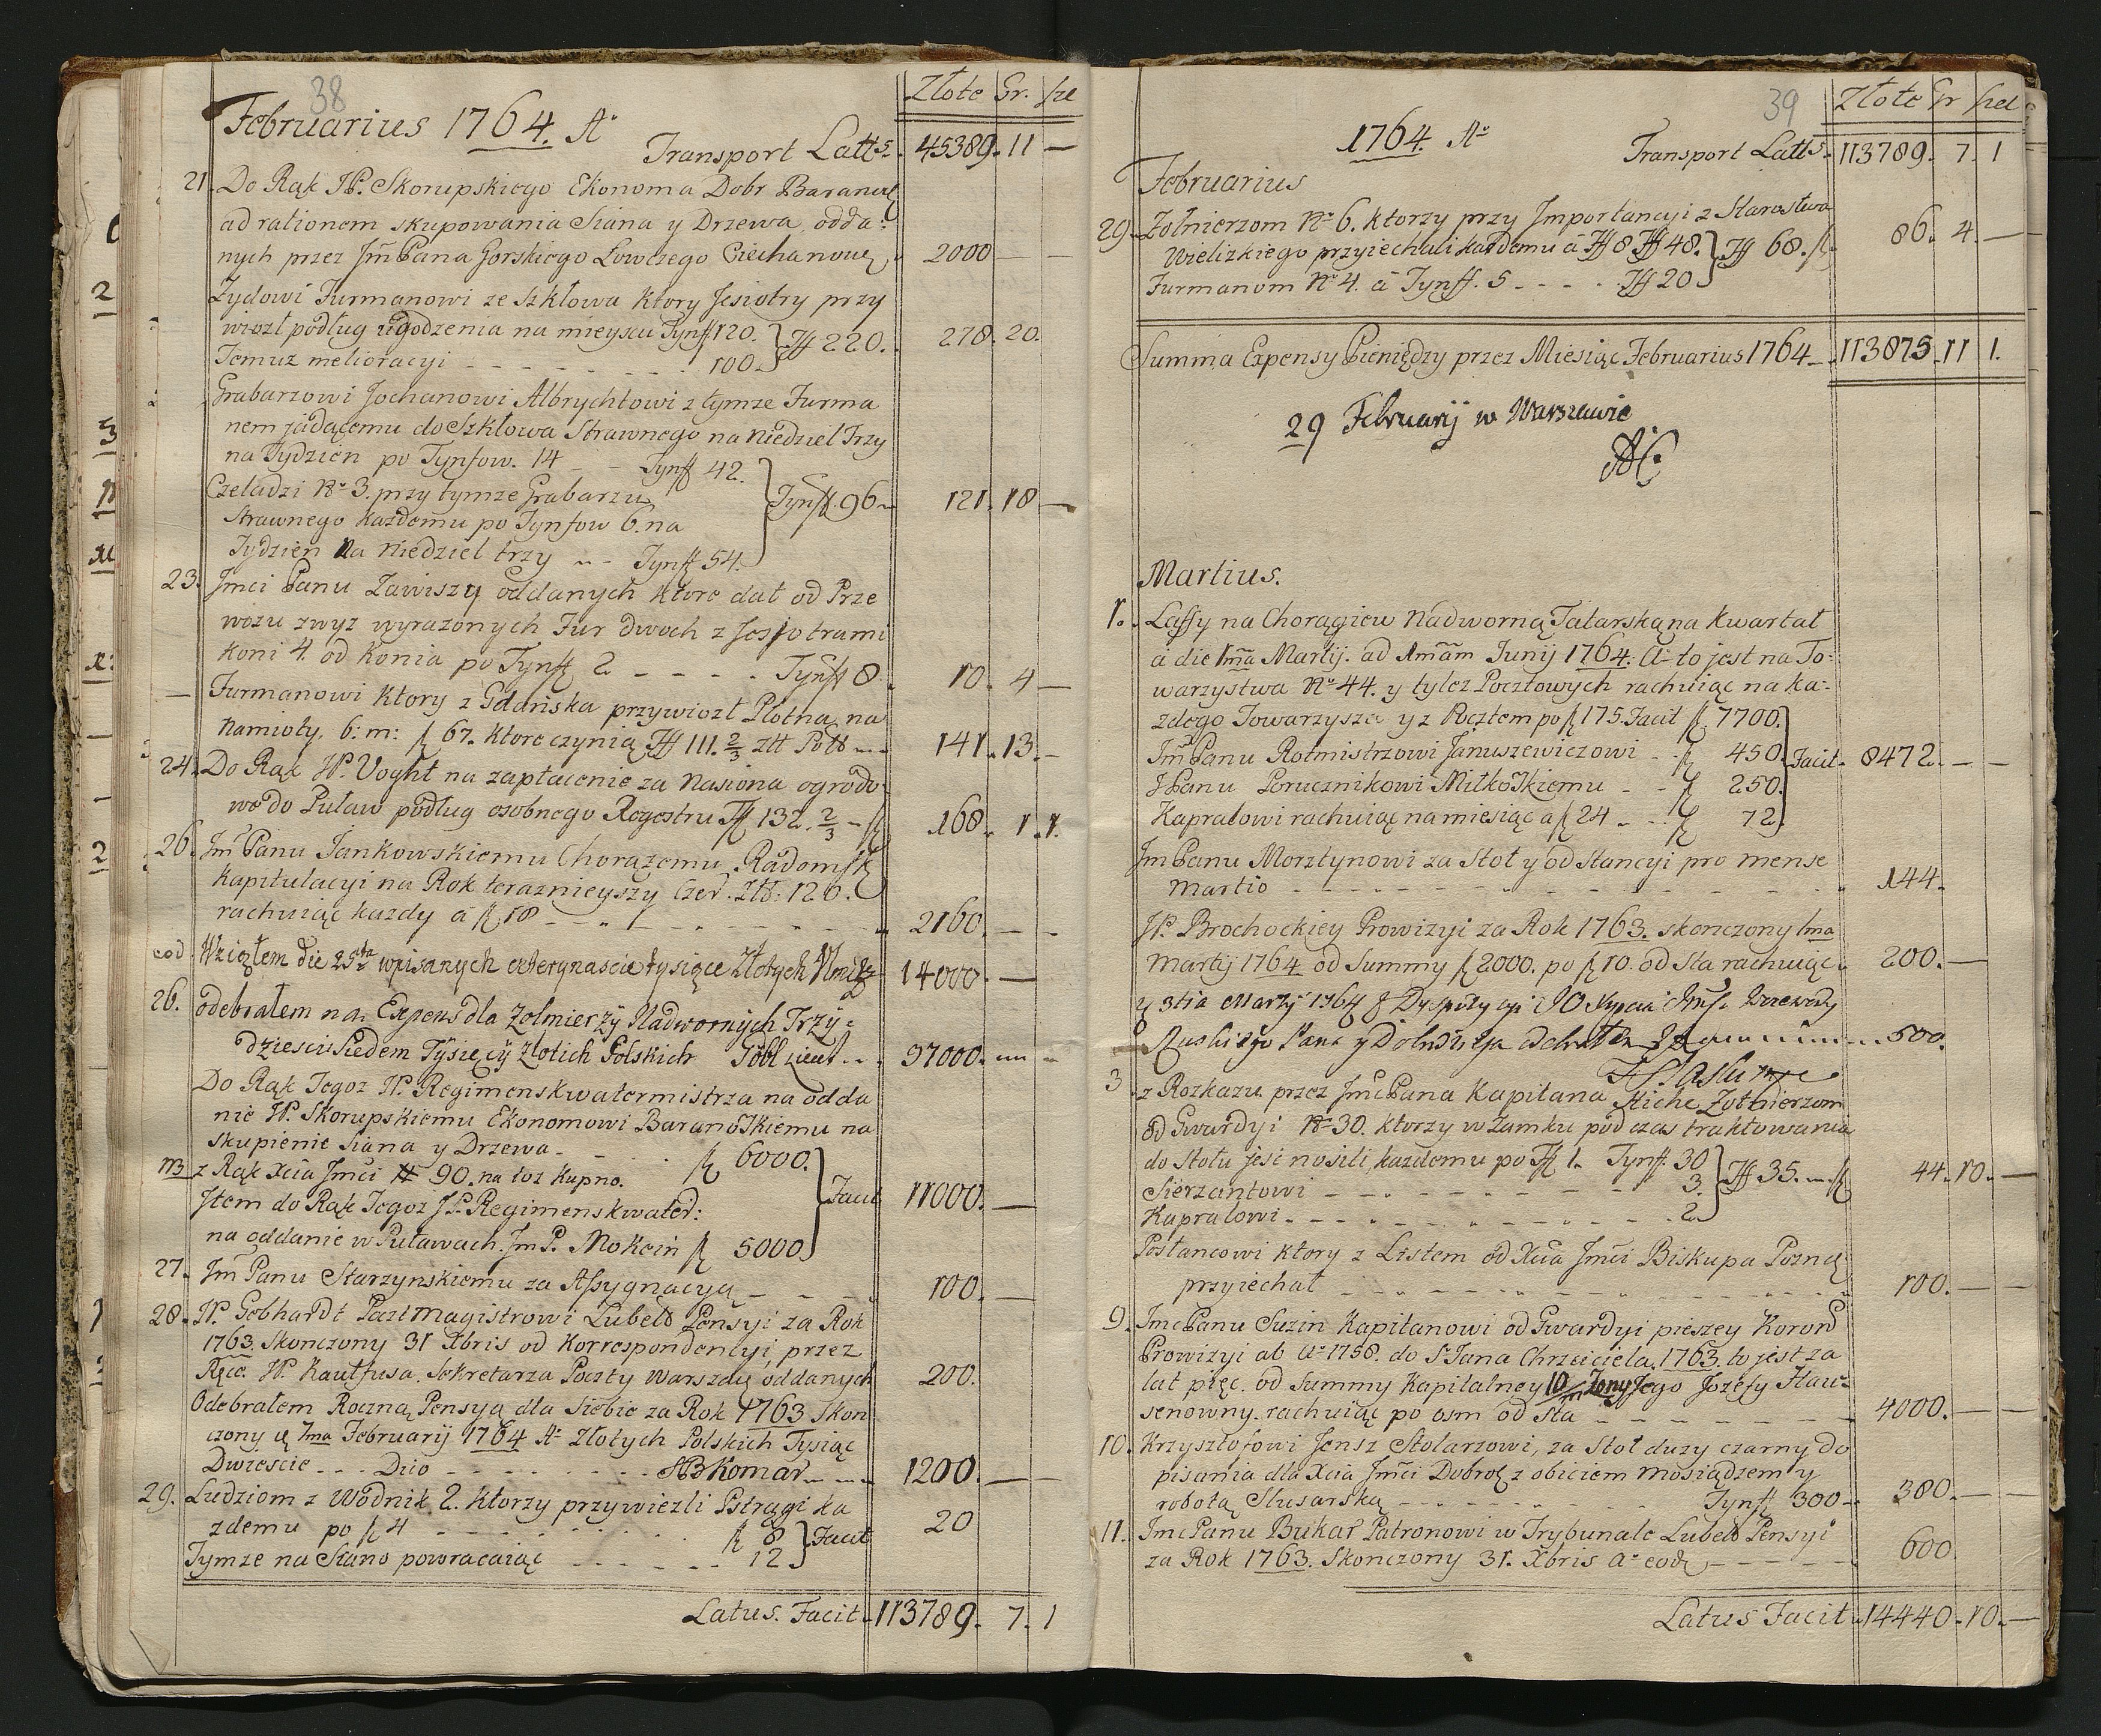 38
Februarius 1764. Aº
Złote Gr. sze
Transport Latts. 45389. 11 —
21. Do Rąk JP. Skorupskiego Ekonoma Dobr Baranow
ad rationem skupowania Siana y Drzewa, odda:
nych przez Jm Pana Gorskiego Łowczego Ciechanow 2000 — —
Zydowi Furmanowi ze Szkłowa ktory Jesiotry przy
wiozł podług ugodzenia na mieyscu Tynff 120.
Temuz melioracyi - - - 100. } Tff 220. 278. 20.
Grabarzowi Jochanowi Albrychtowi z tymze Furma
nem jadącemu do Szkłowa Strawnego na Niedziel Trzy
na Tydzien po Tynfow. 14 - - Tynff 42.
Czeladzi Nº 3. przy tymze Grabarzu
Strawnego kazdemu po Tynfow 6. na
Tydzien Na Niedziel trzy - - Tynff 54. } Tynff. 96 121. 18 —
23. Jmci Panu Zawiszy oddanych ktore dał od Prze
wozu zwyz wyrazonych Fur dwoch z Jesiotrami
koni 4. od konia po Tynff 2 - - - - Tynff 8. 10. 4 —
— Furmanowi ktory z Gdanska przywiozł Płotna na
Namioty, 6: m: f 67. ktore czynią Tff 111. 2/3 złt Pols 141. 13. —
24. Do Rąk JP. Voght na zapłacenie za Nasiona ogrodo
we do Puław podług osobnego Regestru Tff 132. 2/3 - f 168. 1. 1.
26. Jm Panu Jankowskiemu Chorązemu Radomsk
Kapitulacyi na Rok teraznieyszy Czer. Złł: 120.
rachuiąc kazdy a f 18 - - - 2160. — —
eod Wziołem die 25ta wpisanych czternascie tysięce Złotych 14000. —
26. odebrałem na Expens dla Zolmierzÿ Nadwornych Trzÿ=
dziesci Siedem Tÿsięcÿ Złotich Polskich 37000.
Do Rąk Tegoz JP. Regimenskwatermistrza na odda
nie JP. Skorupskiemu Ekonomowi Baranoskiemu na
skupienie Siana y Drzewa - - - f 6000.
NB z Rąk Xcia Jmci # 90. na toz kupno.
Jtem do Rąk Tegoz JP. Regimenskwater:
na oddanie w Puławach. Jm P. Mokcin f 5000 } Facit 11000. —
27. Jm Panu Starzynskiemu za Assygnacyą - - - 100. —
28. JP. Gebhardt Pocztmagistrowi Lubels Pensyi za Rok
1763. Skonczony 31 Xbris od Korrespondencyi, przez
Ręce. JP. Kaulfusa. Sekretarza Poczty Warszaw oddanych 200.
Odebrałem Roczną Pensyą dla Siebie za Rok 1763 Skon
czony 1ma Februarij 1764 Aº Złotych Polskich Tysiąc
Dwiescie - - - Dico - - - Komar 1200. — —
29. Ludziom z Wodnik 2. ktorzy przywiezli Pstrągi ka
zdemu po f 4 - - - f 8
Tymze na Siano powracaiąc - - - 12 } Facit 20
Latus. Facit. 113789. 7. 1
39
1764. Aº
Złote Gr szel
Transport Latts. 113789. 7. 1
Februarius
29. Zołnierzom Nº 6. ktorzy przy Jmportancyi z Starostwa
Wielizkiego przyiechali kazdemu á Tff 8 Tff 48.
Furmanom Nº 4. á Tynff. 5 - - - Tff 20 } Tff 68. f. 86. 4. —
Summa Expensy Pieniędzy przez Miesiąc Februarius 1764 113875. 11 1.
29 Februarij w Warszawie
AC
Martius.
1. Laffy na Chorągiew Nadworną Tatarską na Kwartał
á die 1ma Martij. ad 1mam Junij 1764. Aº to jest na To:
warzystwa Nº 44. y tylez Pocztowych rachuiąc na ka:
zdego Towarzysza y z Pocztem po f 175. Facit f 7700.
Jm Panu Rotmistrzowi Januszewiczowi - f 450.
JPanu Porucznikowi Miłkoskiemu - - f 250.
Kapralowi rachuiąc na miesiąc a f 24 - - f 72. } Facit. 8472. — —
Jm Panu Morsztynowi za Stoł y od Stancyi pro mense
Martio - - - 144.
JP. Brochockiey Prowizyi za Rok 1763. skonczony 1ma
Martij 1764 od Summy f 2000. po f 10. od Sta rachuiąc 200. —
y 3tia Martij 1764
Ruskiego Pana y Dobrodzieja odebrałem 500.
3. z Rozkazu przez Jmc Pana Kapitana Stiche Zołnierzom
od Gwardyi Nº 30. ktorzy w Zamku pod czas traktowania
do Stołu jesc nosili, kazdemu po Tff 1. Tynff. 30
Sierzantowi - - - 3.
Kapralowi - - - 2 } Tff 35. f 44. 10. —
Posłancowi ktory z Listem od Xcia Jmci Biskupa Pozna
przyiechał - - - 100. — —
9. Jmc Panu Suzin Kapitanowi od Gwardyi pieszey Koron
Prowizyi ab Aº 1758. do S. Jana Chrzciciela. 1763. to jest za
lat pięc. od Summy Kapitalney 10/m Zony Jego Jozefy Haw=
senowny. rachuiąc po osm od Sta - - - 4000. — —
10. Krzysztofowi Jensz Stolarzowi, za Stoł duzy czarny do
pisania dla Xcia Jmci Dobrodz z obiciem mosiądzem y
robotą Slusarską - - - Tynff 300 - 380. — —
11. Jmc Panu Bukar Patronowi w Trybunale Lubels Pensyi
za Rok 1763. Skonczony 31. Xbris aº eod - - - 600
Latus Facit 14440. 10. —